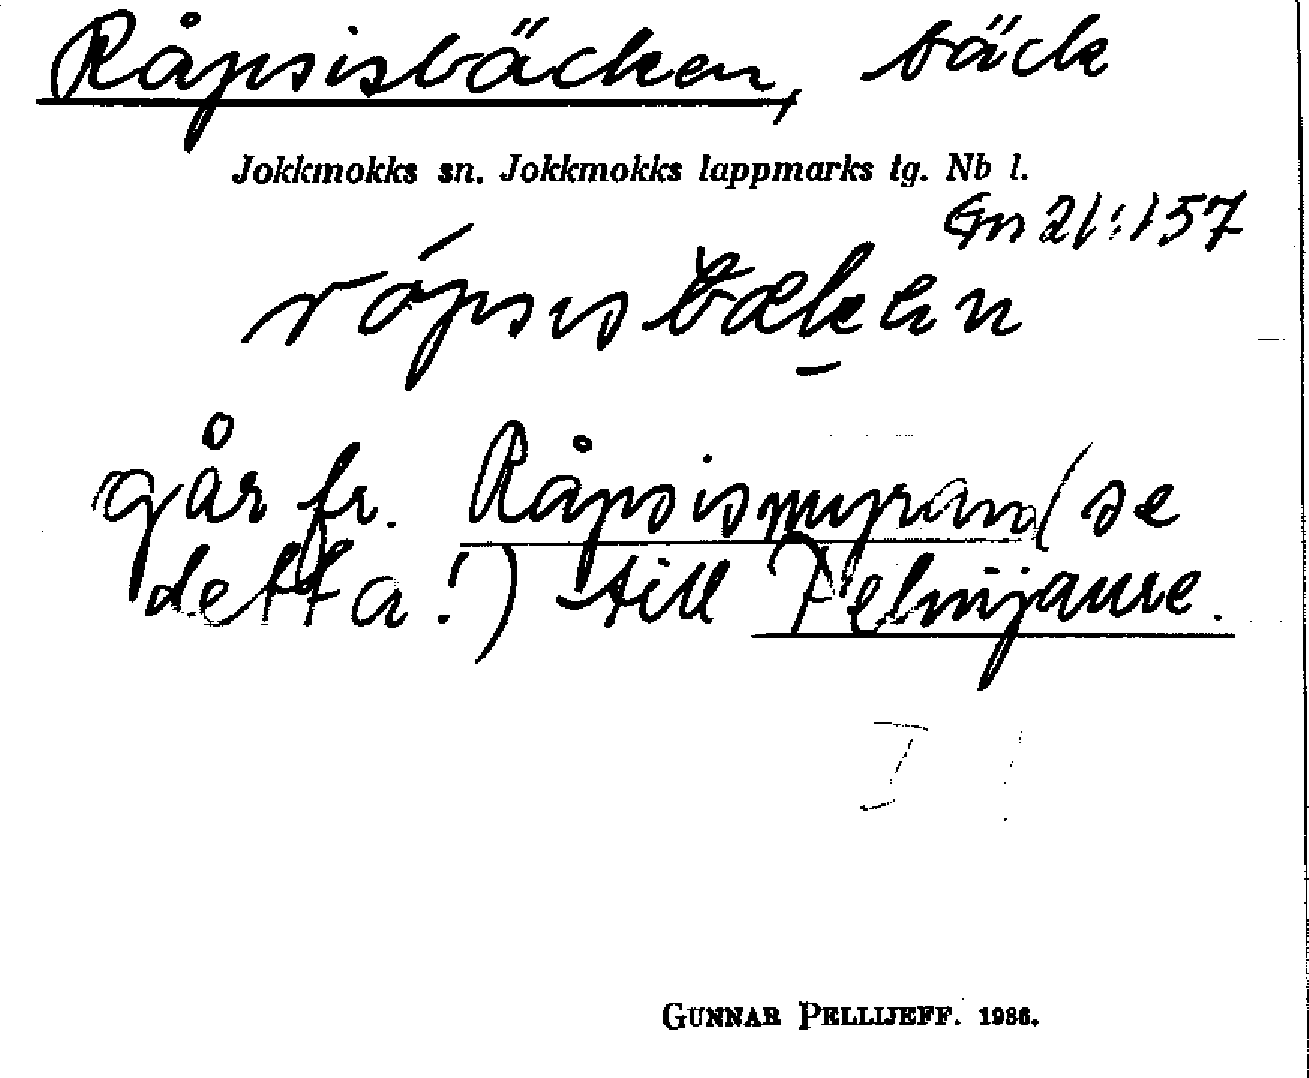 Råpsisbäcken, bäck
Jokkmokks sn. Jokkmokks lappmarks tg. Nb l.
Gn 21:157
rópsisbækεn
går fr. Råpsismyran (se
detta!) till Pelnijaure.
GUNNAR PELLIJEFF. 1986.